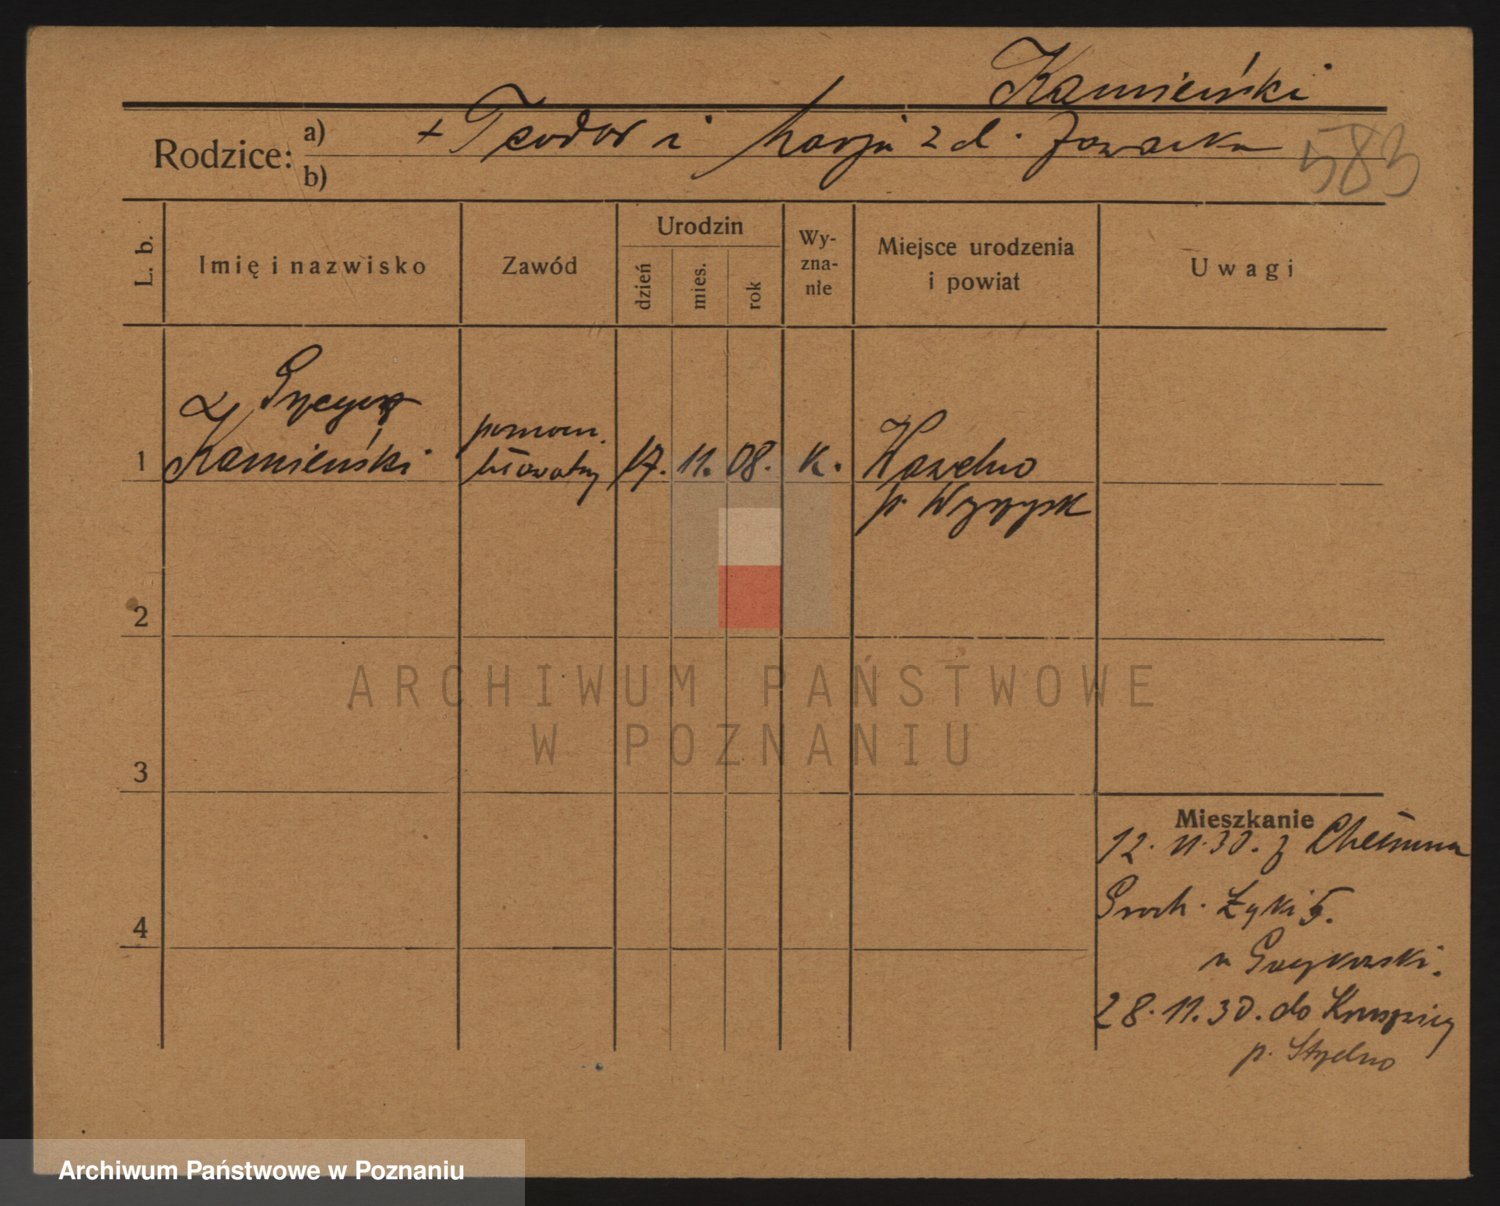 Kamieński
Rodzice: a) + Teodor i Marja z d. Jawarska
b)
583
L. b.
Imię i nazwisko
Zawód
Urodzin
dzień
mies.
rok
Wy-
zna-
nie
Miejsce urodzenia
i powiat
Uwagi
1 Kamieński
pomocn.
biurowy 17. 11. 08. k.
p. Wyrzysk
2
3
4
ARCHIWUM PAŃSTWOWE
W POZNANIU
Mieszkanie
12. 11. 30. z Chełmna
Proch. Łąki 5.
28. 11. 30. do Kruszwicy
p. Strzelno
Archiwum Państwowe w Poznaniu